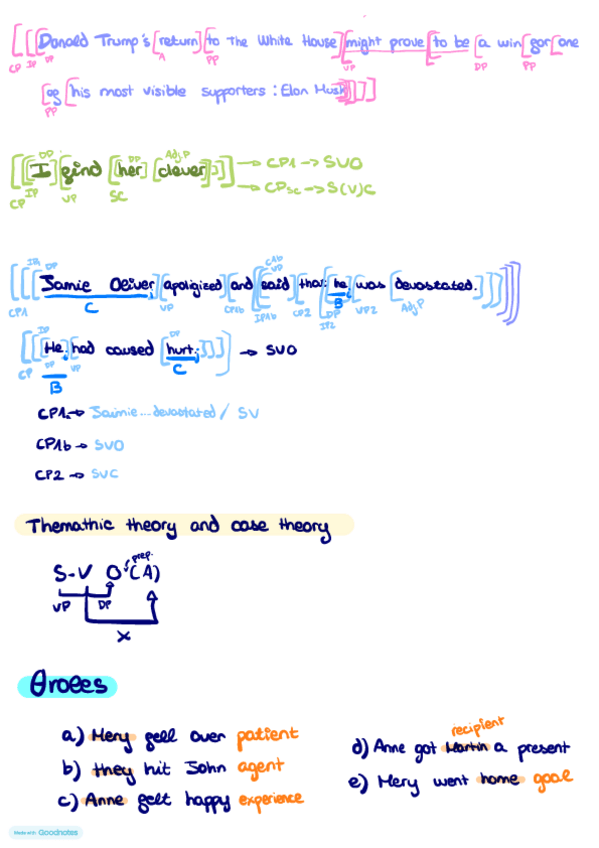 [[[Donald Trump's [return] [to the White House] [might prove [to be [a win [for [one
CP IP DP A PP VP DP PP
[of [his most visible supporters: Elon Musk]]]]]
PP
DP DP AdjP
[[[I] [find [her [clever]]]]] → CP1 → SVO
CP IP VP SC → CPsc → S(V)C
IP1 DP CP1b VP
[[[Jamie Oliver] [apoligized] [and [[said [that [he] [was [devastated.]]]]]]]
CP1 C VP CP1b IP1b CP2 DP B IP2 VP2 AdjP
IP DP
[[[He] [had caused [hurt]]]] → SVO
CP DP VP
B C
CP1 → Jaimie...devastated / SV
CP1b → SVO
CP2 → SVC
Themathic theory and case theory
prep.
S-V O (A)
VP DP
X
θroles
a) Mery fell over patient
b) they hit John agent
c) Anne felt happy experience
recipient
d) Anne got Martin a present
e) Mery went home goal
Made with Goodnotes